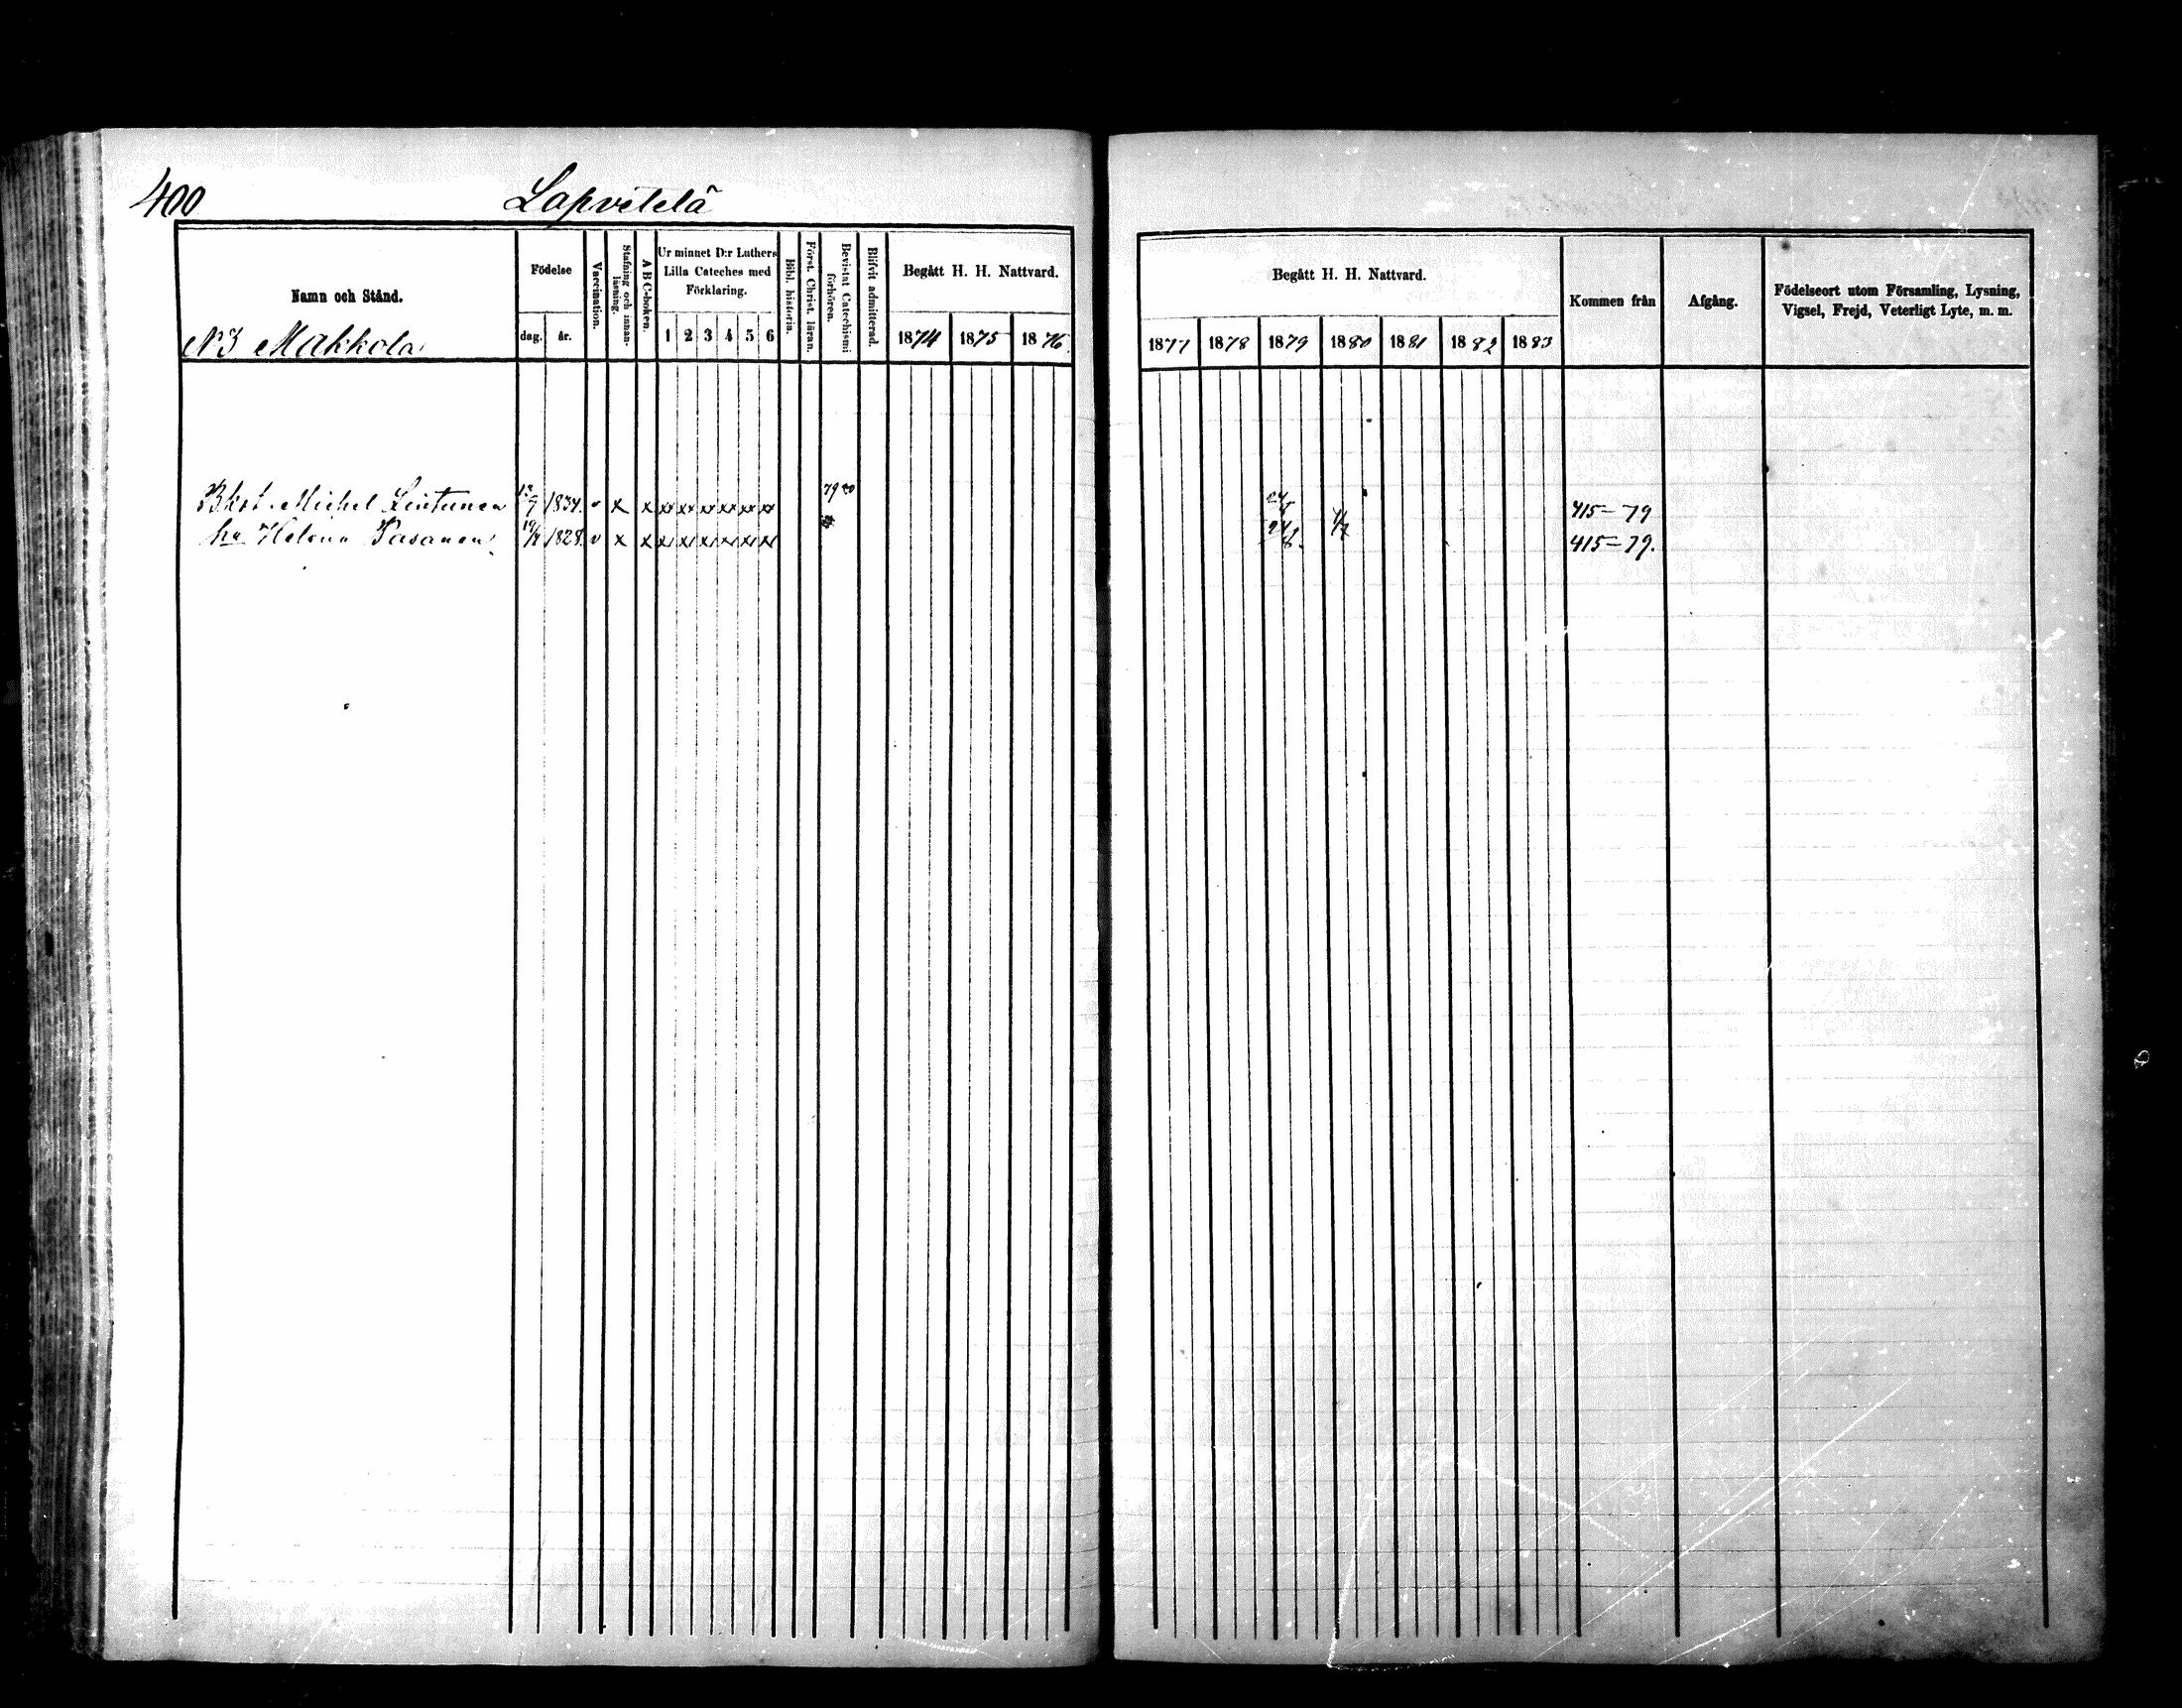 400 Lapvetelä
Namn och Stånd. Födelse dag. år. Vaccination. Stafning och innanläsning. A B C-boken. Ur minnet D:r Luthers Lilla Cateches med Förklaring. 1 2 3 4 5 6 Bibl. historia. Först. Christ. läran. Bevistat Catechismi förhören. Blifvit admitterad. Begått H. H. Nattvard. 1874 1875 1876.
Begått H. H. Nattvard. 1877 1878 1879 1880 1881 1882 1883 Kommen från Afgång. Födelseort utom Församling, Lysning, Vigsel, Frejd, Veterligt Lyte, m. m.
N3 Makkola
Bkst. Michel Lintunen 1834. v x x xx xx xx xx xx xx 79 80 415-79
hu Helena Pasanen 19/4 1828. v x x xx xx xx xx xx xx 24/8. 415-79.